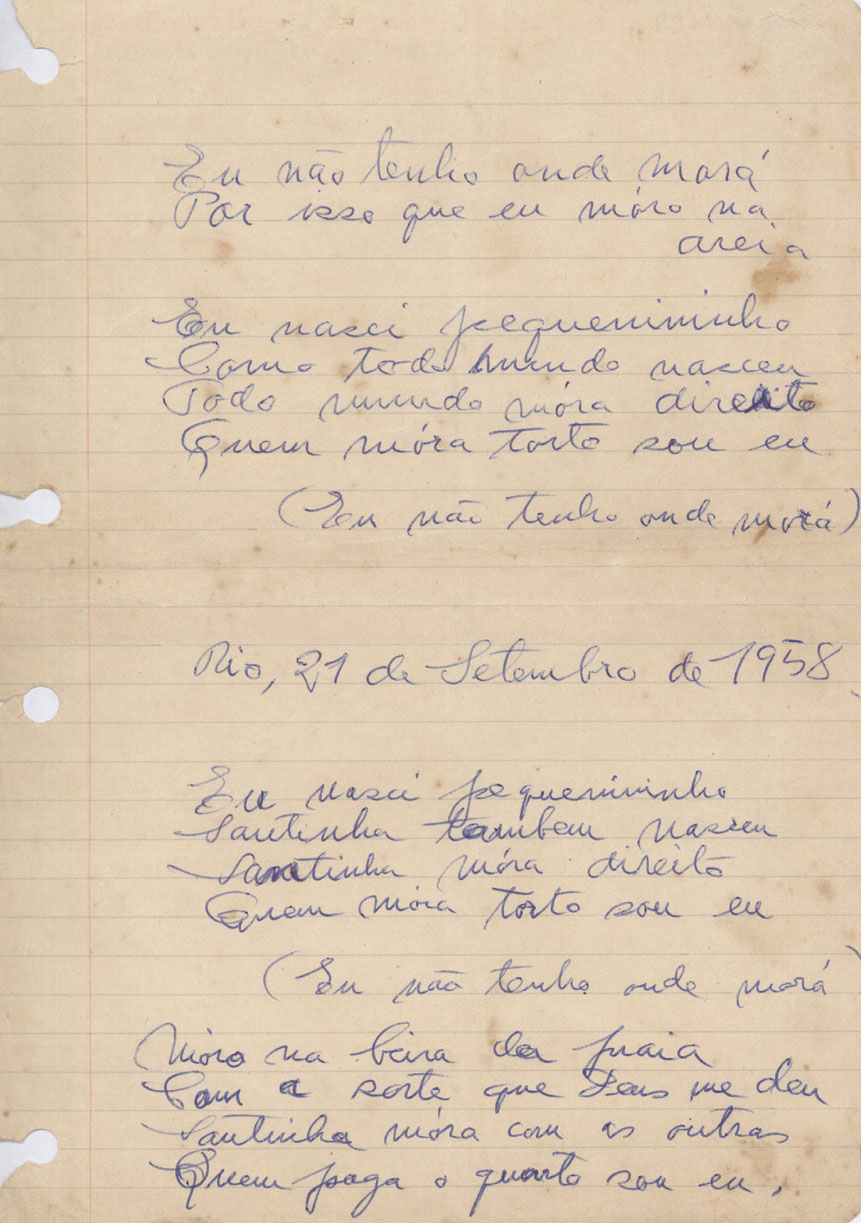 Eu não tenho onde morá
Por isso que eu móro na
areia
Eu nasci pequenininho
Como todo mundo nasceu
Todo mundo móra direito
Quem móra torto sou eu
(Eu não tenho onde morá)
Rio, 21 de Setembro de 1958
Eu nasci pequenininho
Santinha tambem nasceu
Santinha móra direito
Quem móra torto sou eu
(Eu não tenho onde morá
Móro na beira da praia
Com a sorte que Deus me deu
Santinha móra com as outras
Quem paga o quarto sou eu.